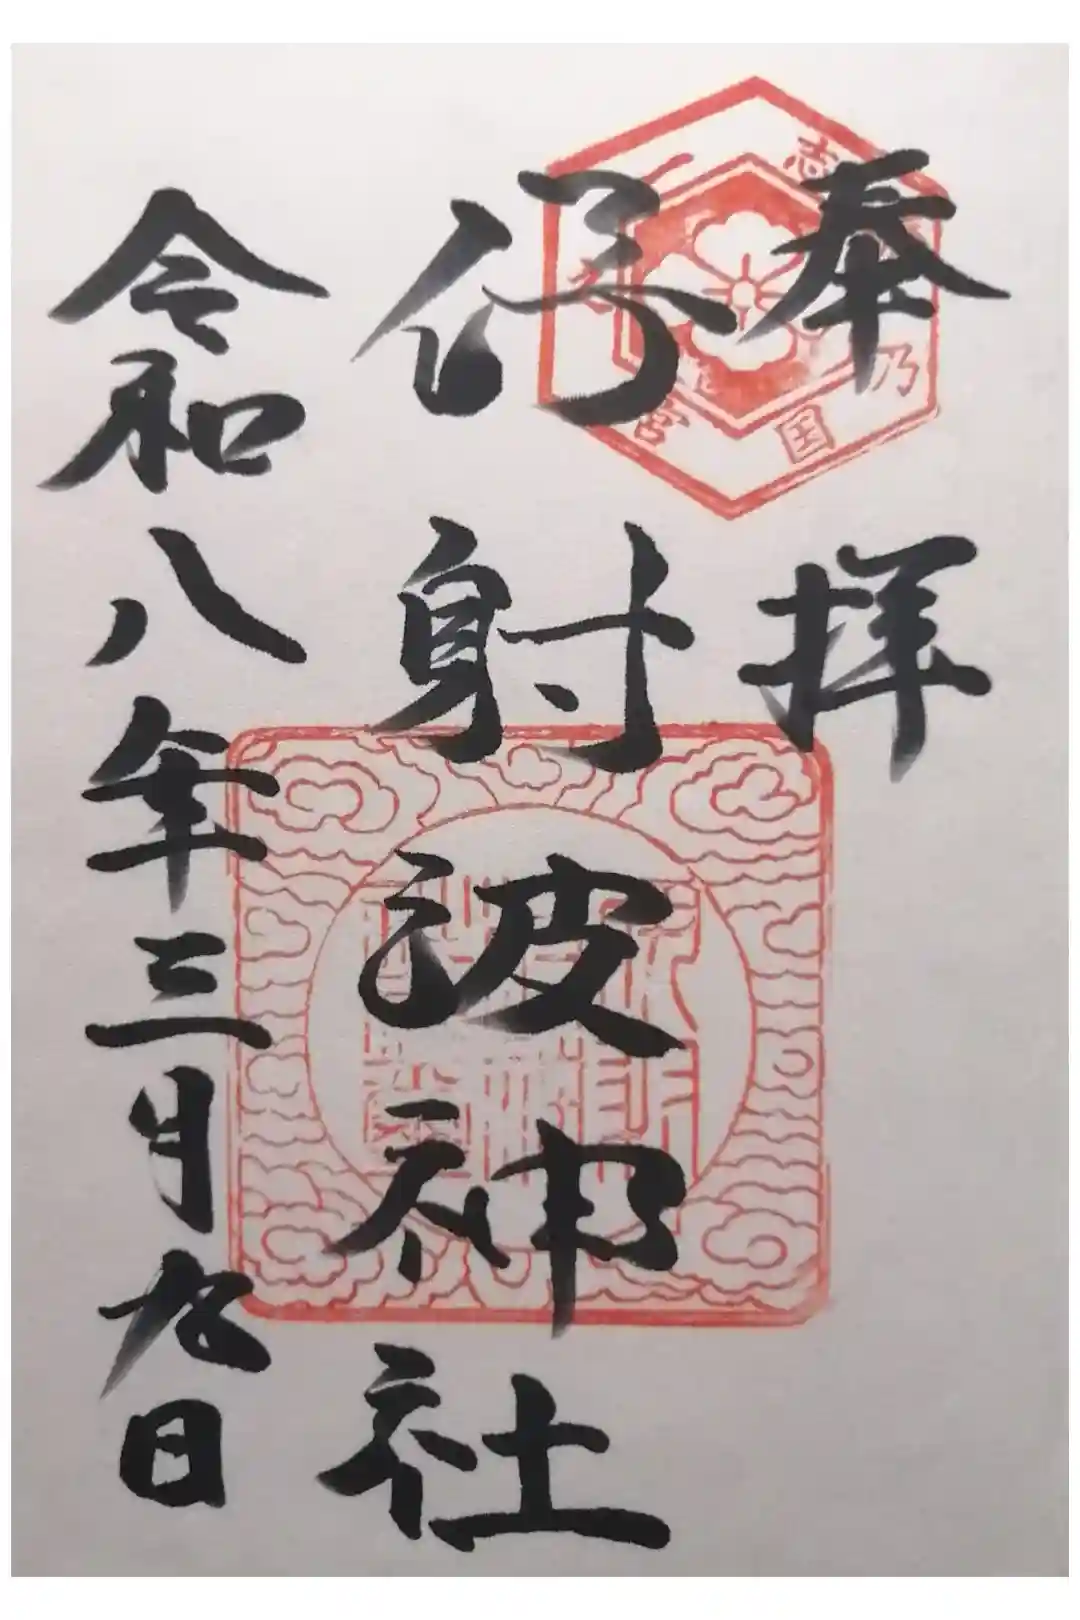 奉拝
志摩乃国
一之宮
伊射波神社
令和八年三月九日